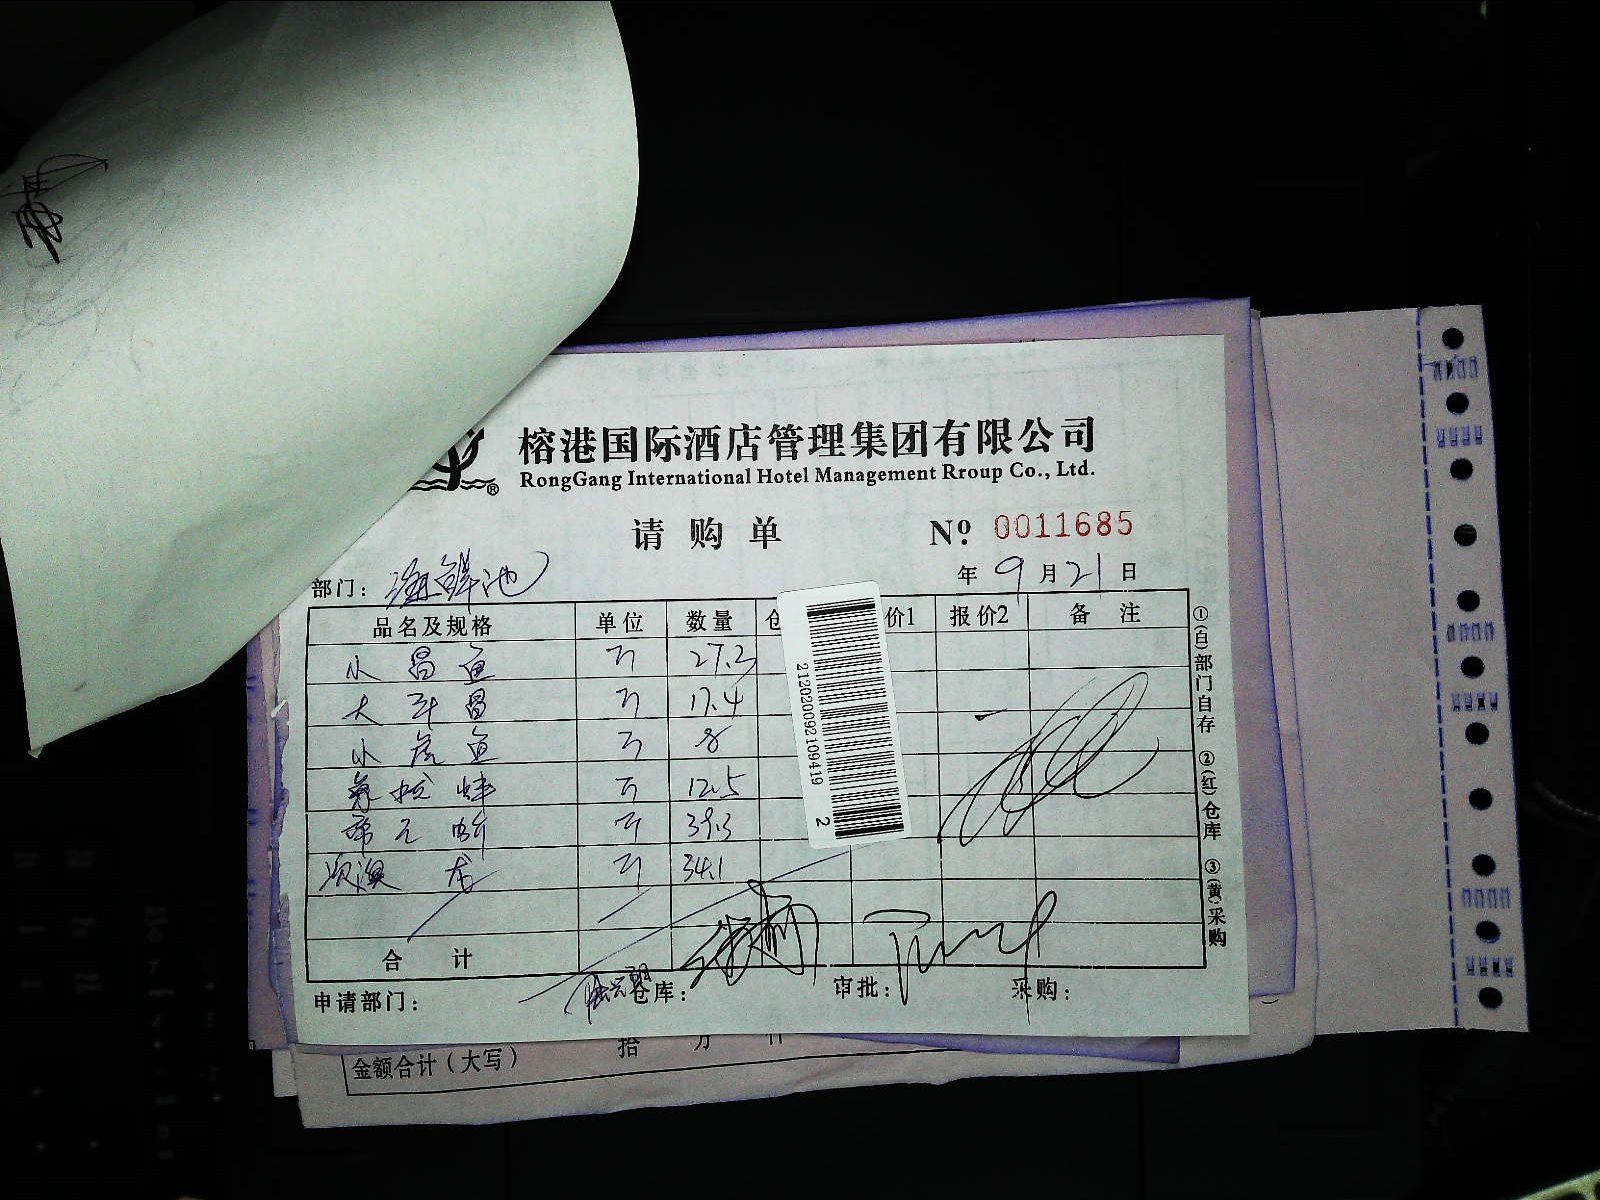 榕港国际酒店管理集团有限公司
®
RongGang International Hotel Management Rroup Co., Ltd.
请购单 Nº: 0011685
部门: 海鲜池 年 9 月 21 日
品名及规格 单位 数量 仓 价1 报价2 备注
小昌鱼 斤 27.3
大斗昌 斤 17.4
小虎鱼 斤 8
斤 12.5
斤 39.3
次澳龙 斤 34.1
合计
申请部门: 仓库: 审批: 采购:
①(白)部门自存 ②(红)仓库 ③(黄)采购
21202009210941 9 2
金额合计(大写) 拾 万 仟